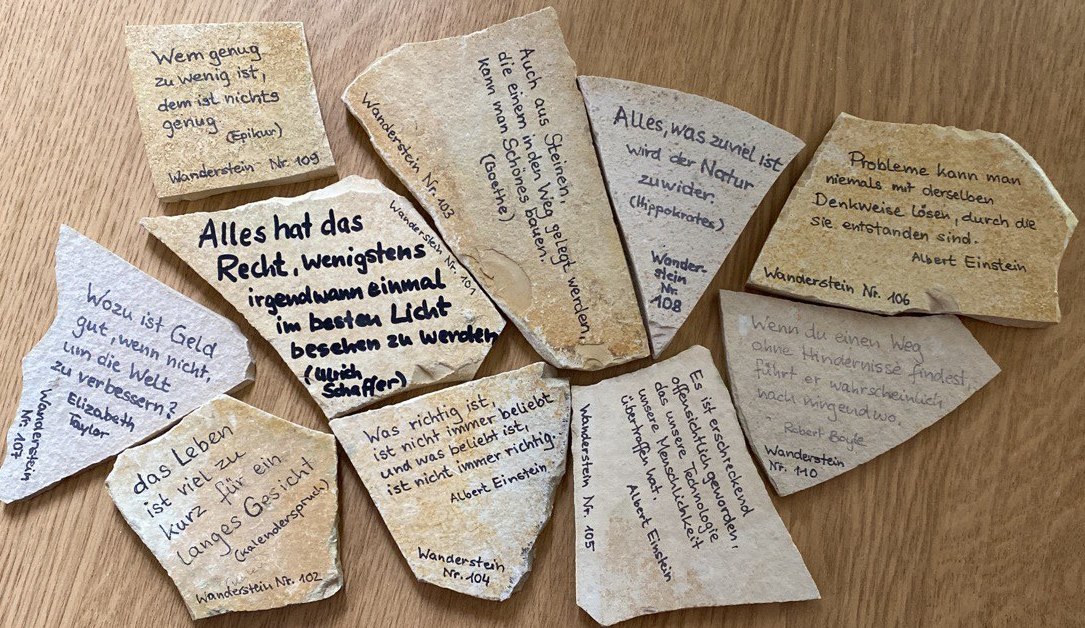 Wem genug
zu wenig ist,
dem ist nichts
genug
(Epikur)
Wanderstein Nr. 109
Auch aus Steinen,
die einem in den Weg gelegt werden,
kann man Schönes bauen.
(Goethe)
Wanderstein Nr. 103
Alles, was zuviel ist
wird der Natur
zuwider.
(Hippokrates)
Wander-
stein
Nr.
108
Probleme kann man
niemals mit derselben
Denkweise lösen, durch die
sie entstanden sind.
Albert Einstein
Wanderstein Nr. 106
Alles hat das
Recht, wenigstens
irgendwann einmal
im besten Licht
besehen zu werden
(Ulrich
Schaffer)
Wanderstein Nr. 101
Wozu ist Geld
gut, wenn nicht,
um die Welt
zu verbessern?
Elizabeth
Taylor
Wanderstein
Nr. 107
das Leben
ist viel zu
kurz für ein
langes Gesicht
(Kalenderspruch)
Wanderstein Nr. 102
Was richtig ist,
ist nicht immer beliebt
und was beliebt ist,
ist nicht immer richtig.
Albert Einstein
Wanderstein
Nr. 104
Es ist erschreckend
offensichtlich geworden,
das unsere Technologie
unsere Menschlichkeit
übertroffen hat.
Albert Einstein
Wanderstein Nr. 105
Wenn du einen Weg
ohne Hindernisse findest,
führt er wahrscheinlich
nach nirgendwo
Robert Boyle
Wanderstein
Nr. 110